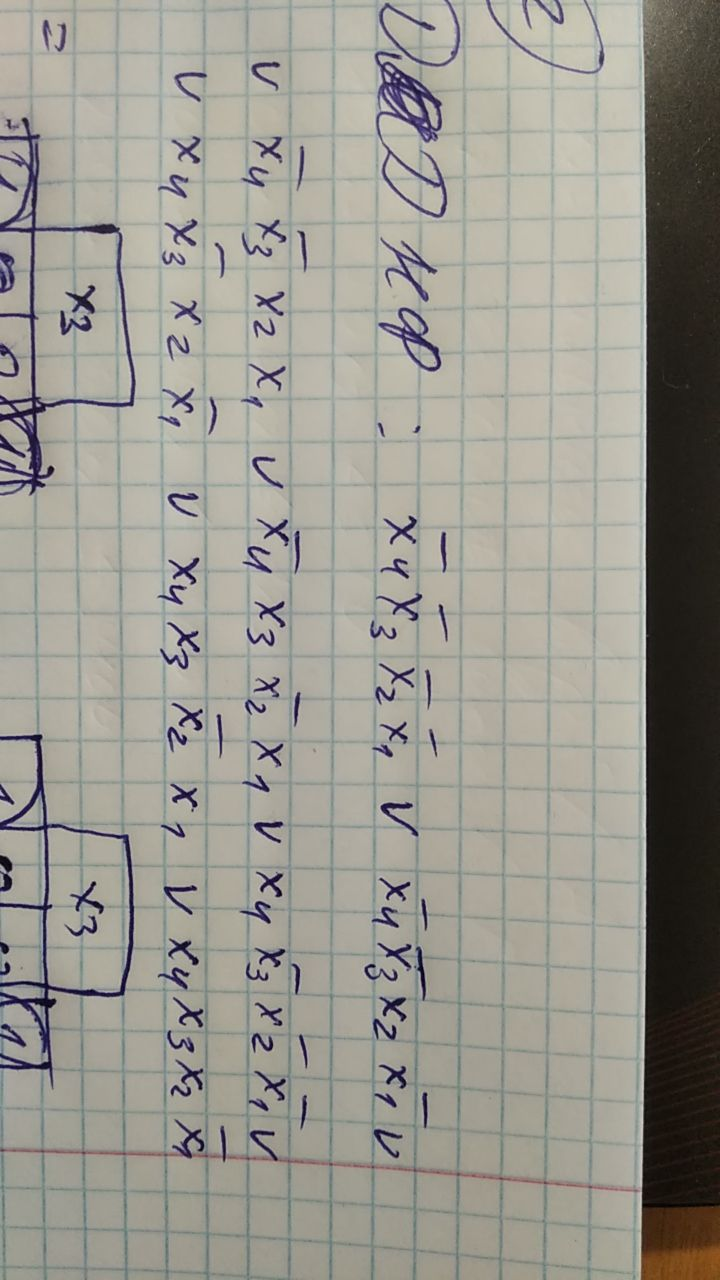 2
Днф : x̄₄ x̄₃ x̄₂ x̄₁ V x̄₄ x̄₃ x₂ x̄₁ V
V x̄₄ x̄₃ x₂ x₁ V x̄₄ x₃ x̄₂ x₁ V x₄ x̄₃ x̄₂ x̄₁ V
V x₄ x̄₃ x₂ x̄₁ V x₄ x₃ x̄₂ x₁ V x₄ x₃ x₂ x̄₁
x₃ x₃